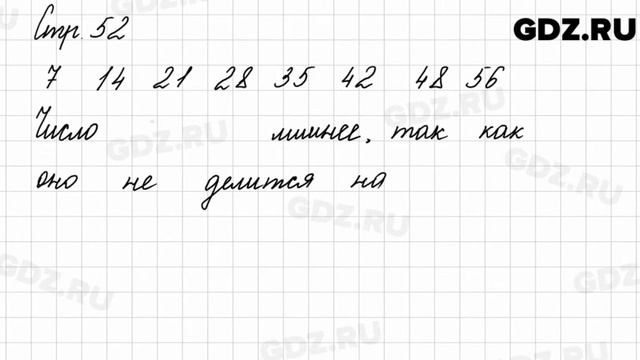 Стр. 52
GDZ.RU
7 14 21 28 35 42 48 56
Число лишнее, так как
оно не делится на
GDZ.RU
GDZ.RU
GDZ.RU
GDZ.RU
GDZ.RU
GDZ.RU
GDZ.RU